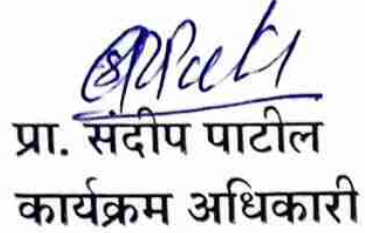 प्रा. संदीप पाटील
कार्यक्रम अधिकारी